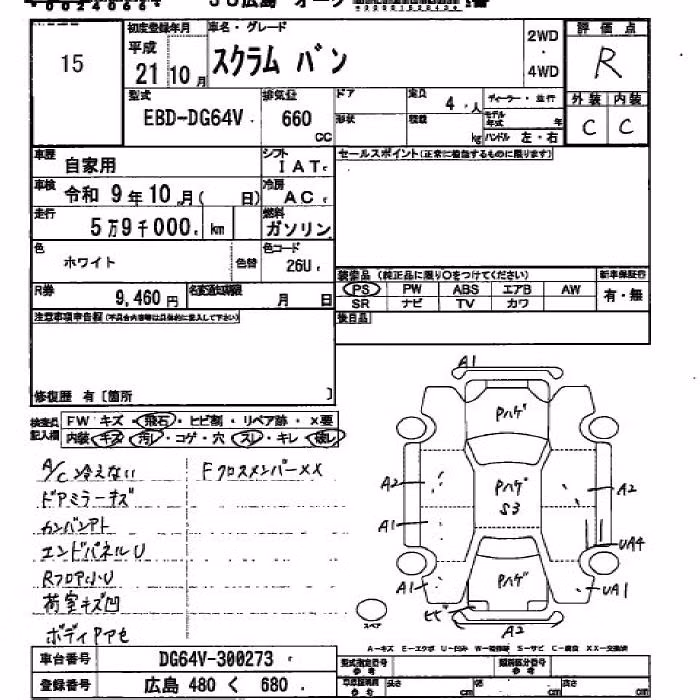 15
初度登録年月
平成
21 10月
車名・グレード
スクラム バン
2WD
・
4WD
評価点
R
外装 内装
C C
型式
EBD-DG64V
排気量
660
cc
ドア
定員
4 人
ディーラー・並行
形状
積載
kg
モデル年式 年
ハンドル 左・右
車歴
自家用
シフト
IAT
セールスポイント(正常に稼働するものに限ります)
車検
令和 9年10月( 日)
冷房
AC
走行
5万9千000 km
燃料
ガソリン
色
ホワイト
色替
色コード
26U
R券
9,460円
名変通知期限
月 日
装備品 (純正品に限り○をつけてください)
新車保証書
PS PW ABS エアB AW
有・無
SR ナビ TV カワ
注意事項申告欄(不具合内容等は具体的に記入して下さい)
後日品
修復歴 有〔箇所 〕
検査員記入欄
FW キズ・飛石・ヒビ割・リペア跡・X要
内装 キズ・汚レ・コゲ・穴・スレ・キレ・破レ
A/C冷えない
Fクロスメンバーxx
ドアミラーキズ
カンバンアト
エンドパネルU
Rフロア小U
荷室キズ凹
ボディPアセ
A1
Pハゲ
A2
Pハゲ
S3
A2
A1
UA4
A1
Pハゲ
UA1
ヒビ
A2
スペア
A-キズ E-エクボ U-凹み W-補修跡 S-サビ C-腐食 XX-交換済
車台番号
DG64V-300273
登録番号
広島 480 く 680
型式指定番号
参考
類別区分番号
参考
長さ cm
幅 cm
高さ cm